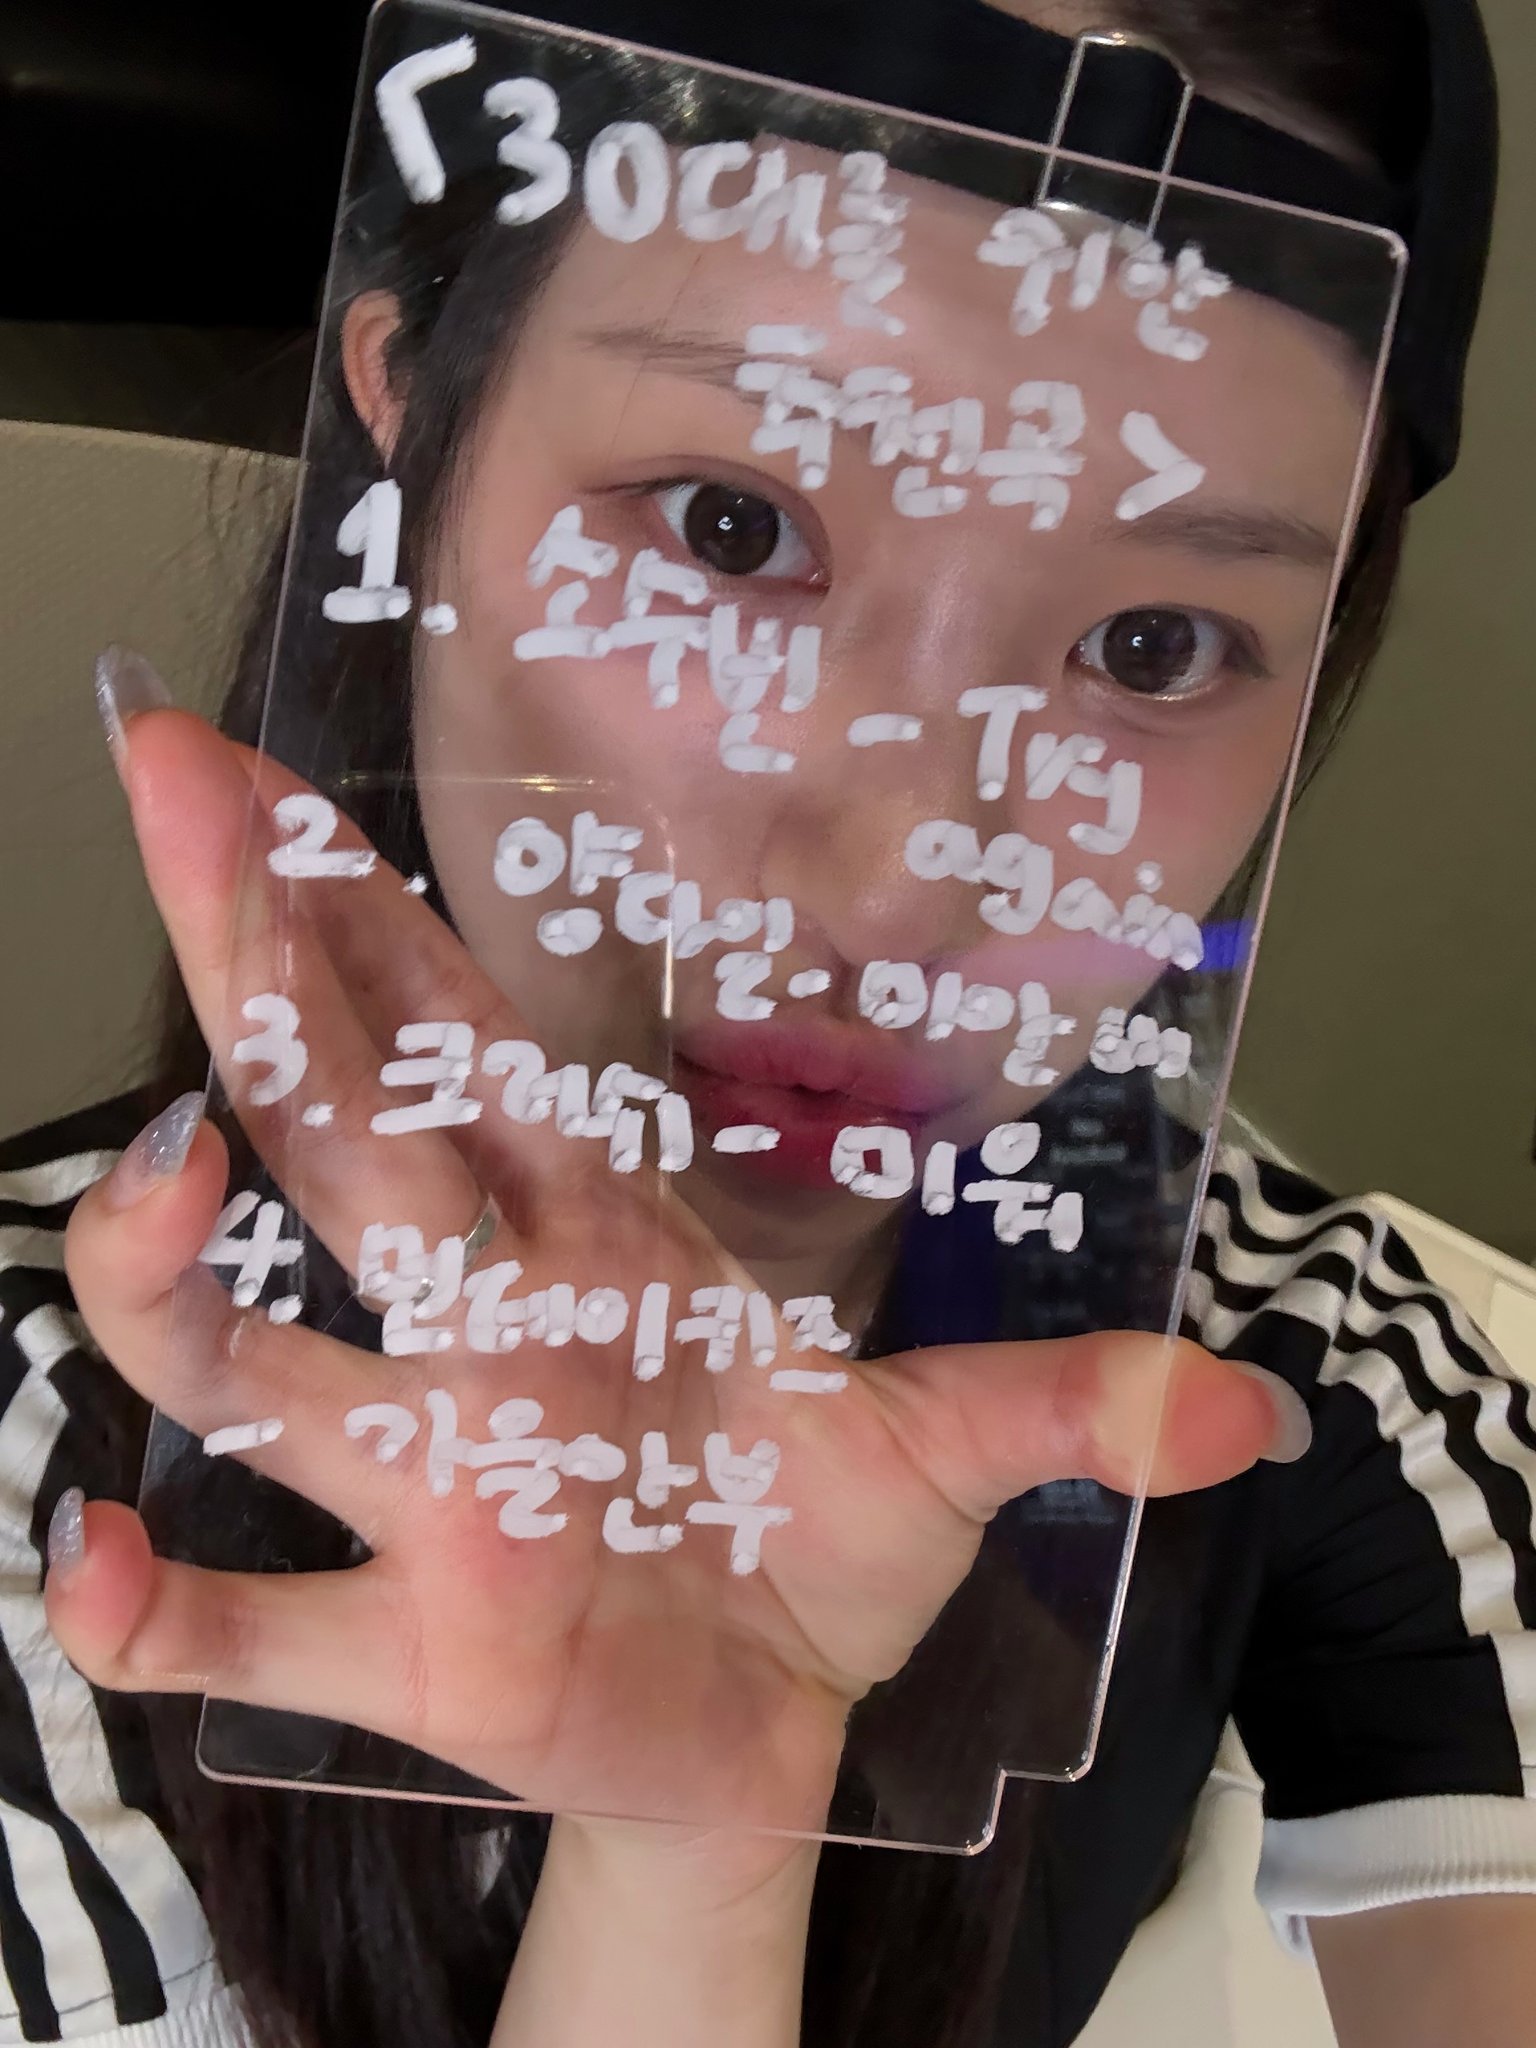 「30대를 위한
추천곡>
1. 소수빈 - Try
again
2. 양다일 - 미안해
3. 크러쉬 - 미워
4. 먼데이키즈
- 가을안부